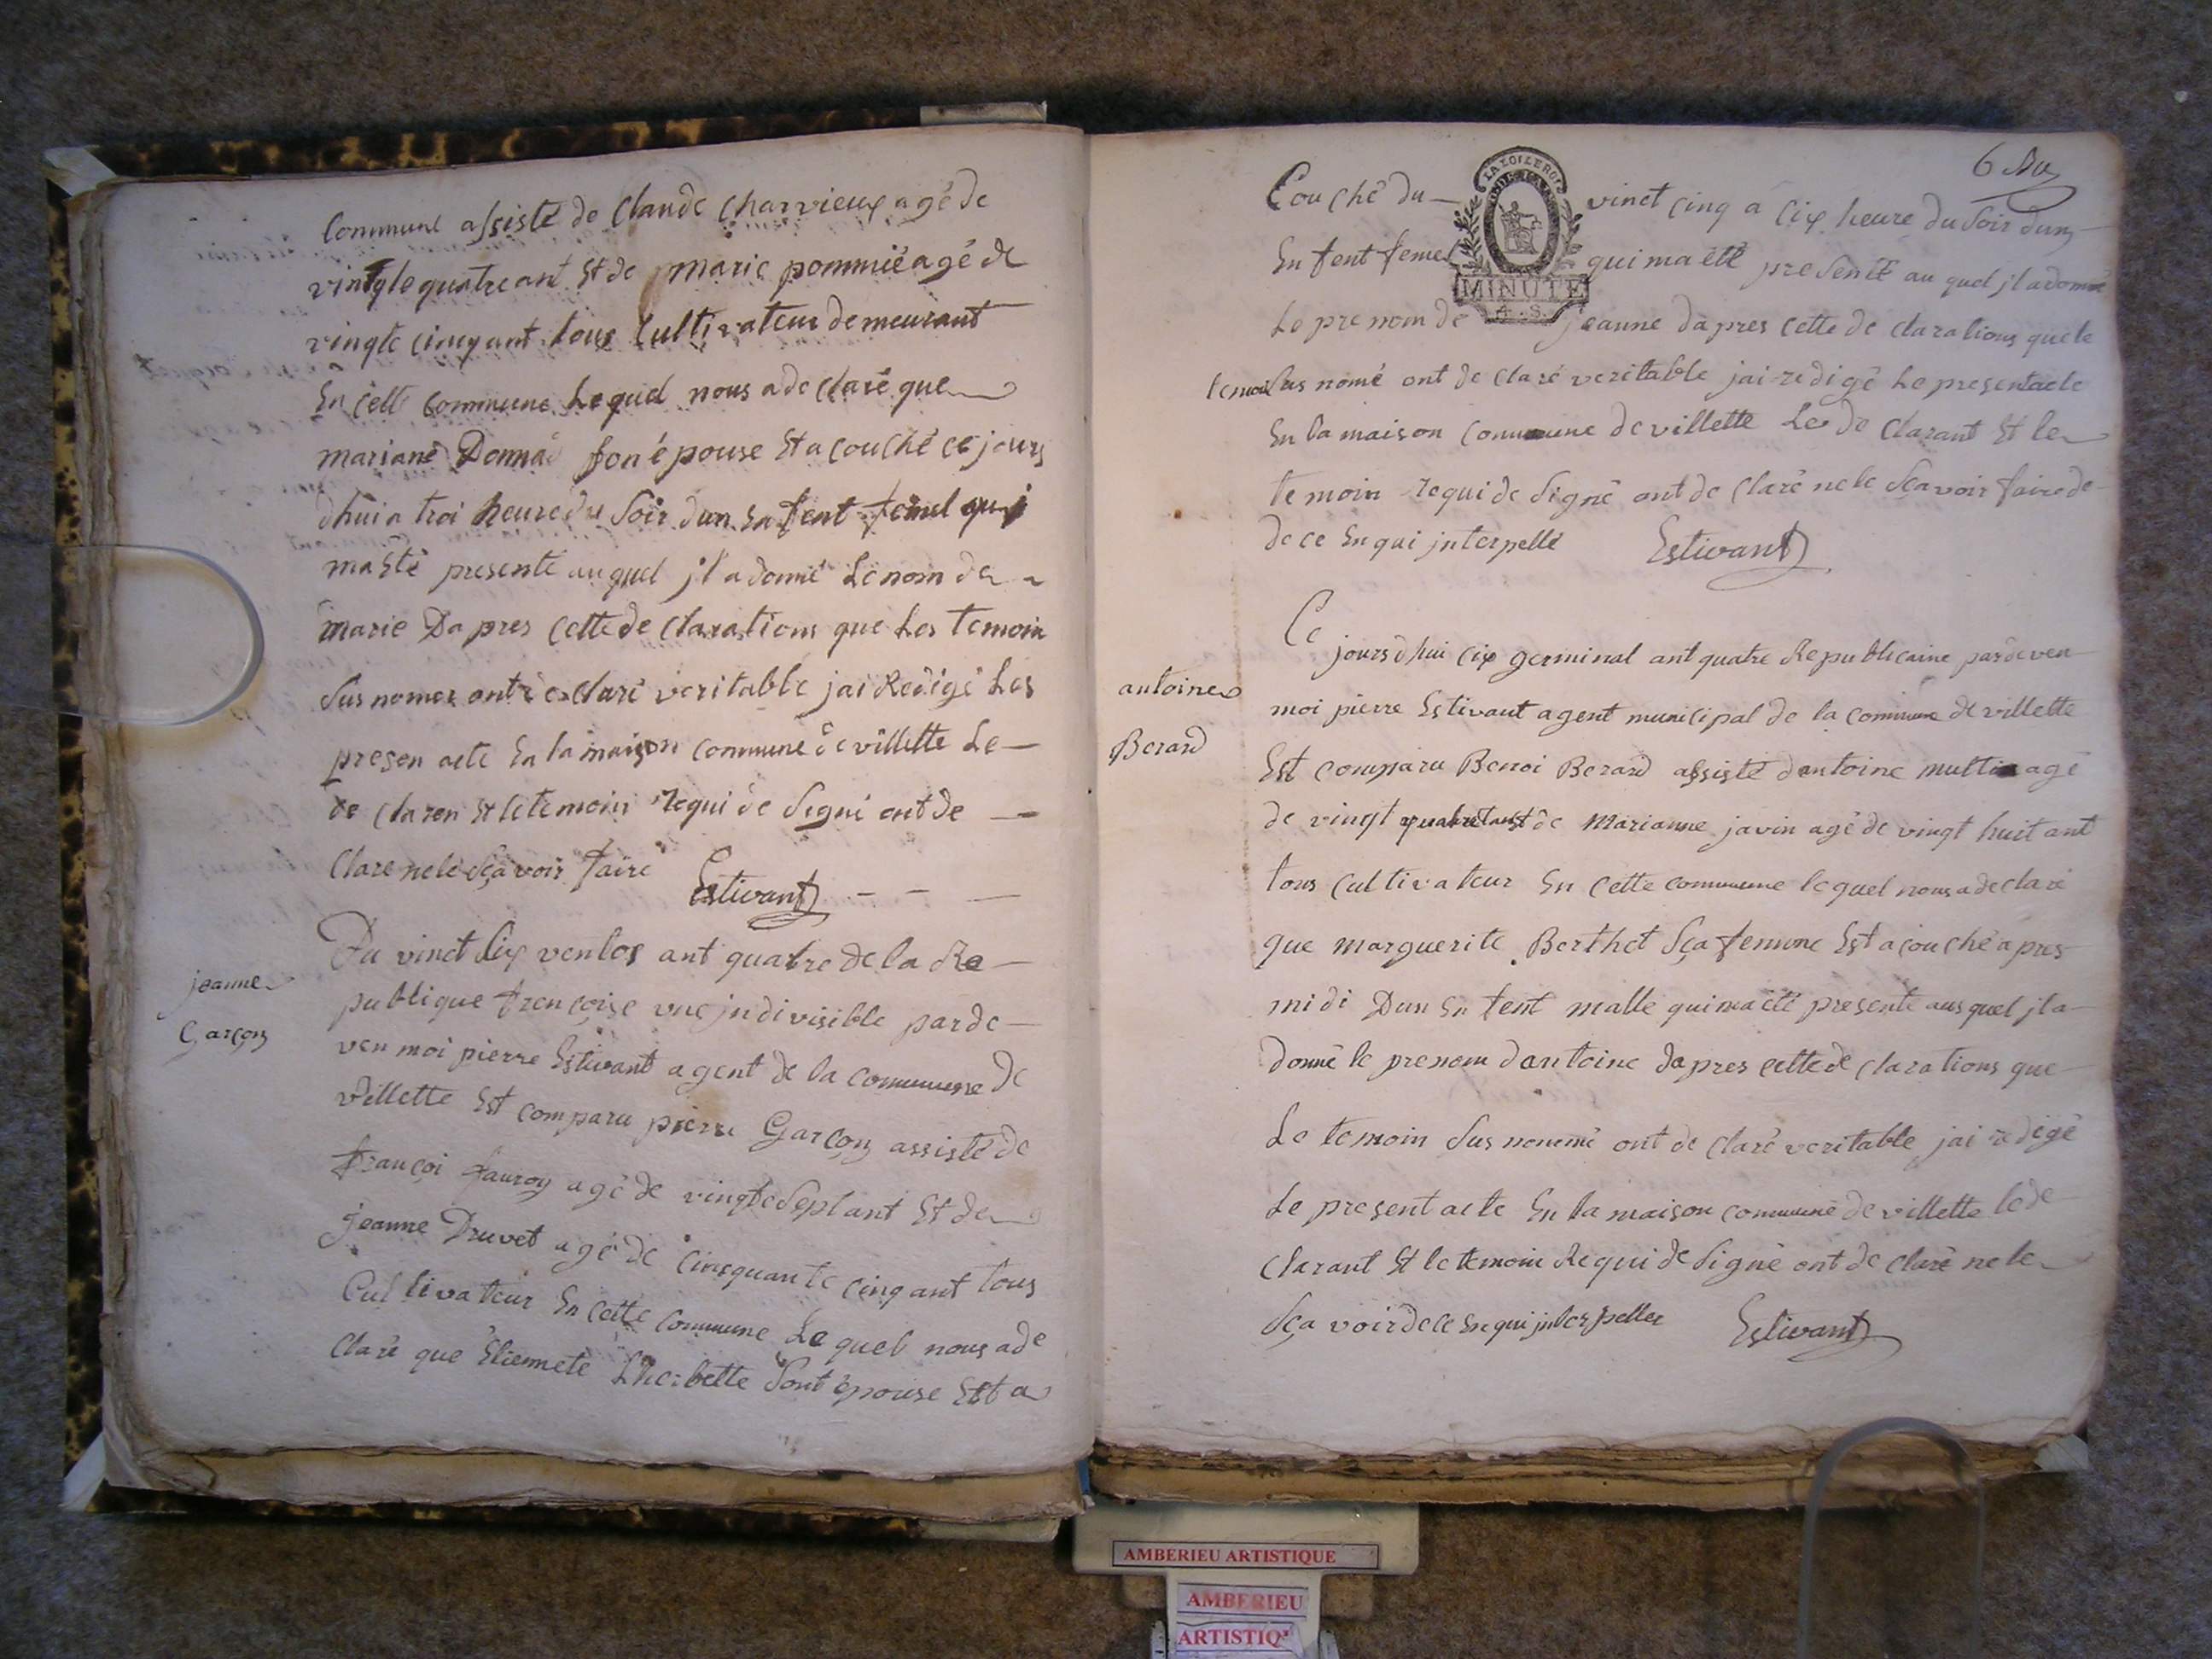 Commune assisté de Claude Charvieux agé de
vingte quatre ant Et de marie pommié agé de
vingte cinq ant tous Cultivateur demeurant
En cette Commune Lequel nous a de claré que
mariane Donna son épouse Et acouché ce jours
dhui a troi heure du Soir dun En fent femel qui
ma Eté presenté au quel jl a donné Le nom de
marie Da pres cette de clarations que Les temoin
Sus nomer ont de claré veritable jai Redigé Les
presen acte En la maison commune de villette Le
de claren Et le temoin requi de Signé ont de
Claré ne le Sçavoir faire Estivant
jeanne
Garçon
Du vinct Six ventos ant quatre de la Re
publique françoise vne jndivisible parde
ven moi pierre Estivant agent de la commune de
villette Est comparu pierre Garçon assisté de
françoi fauroy agé de vingte Sept ant Et de
jeanne Druvet agé de Cincquante Cinq ant tous
Cultivateur En cette Commune Le quel nous a de
Claré que Etiennete Lherbette Sont épouse Est a
6 Du
Couché du vinct cinq a Cix heure du Soir dun
En fent femel qui ma été presenté au quel jl a donné
Le prenom de jeanne dapres cette de clarations que le
temoin Sus nomé ont de claré veritable jai redigé Le present acte
En la maison commune de villette Le de clarant Et le
temoin requi de Signé ont de Claré ne le Sçavoir faire de
de ce En qui jnterpellé Estivant
LA LOI LE ROI
MINUTE
4.S.
antoine
Berard
Ce
jours dhui Cix germinal ant quatre Republicaine par de ven
moi pierre Estivant agent municipal de la commune de villette
Est comparu Benoi Berard assisté dantoine agé
de vingt quatre ant Et de Marianne javin agé de vingt huit ant
tous cultivateur En cette commune le quel nous a de claré
que marguerite Berthet Sça femme Est acouché apres
midi Dun En fent malle qui ma été presenté aus quel jl a
donné le prenom dantoine dapres cette de clarations que
Le temoin Sus nommé ont de claré veritable jai redigé
Le present acte En la maison commune de villette le de
Clarant Et le temoin Requi de Signé ont de claré ne le
Sça voir de ce En qui jnterpeller Estivant
AMBERIEU ARTISTIQUE
AMBERIEU
ARTISTIQ